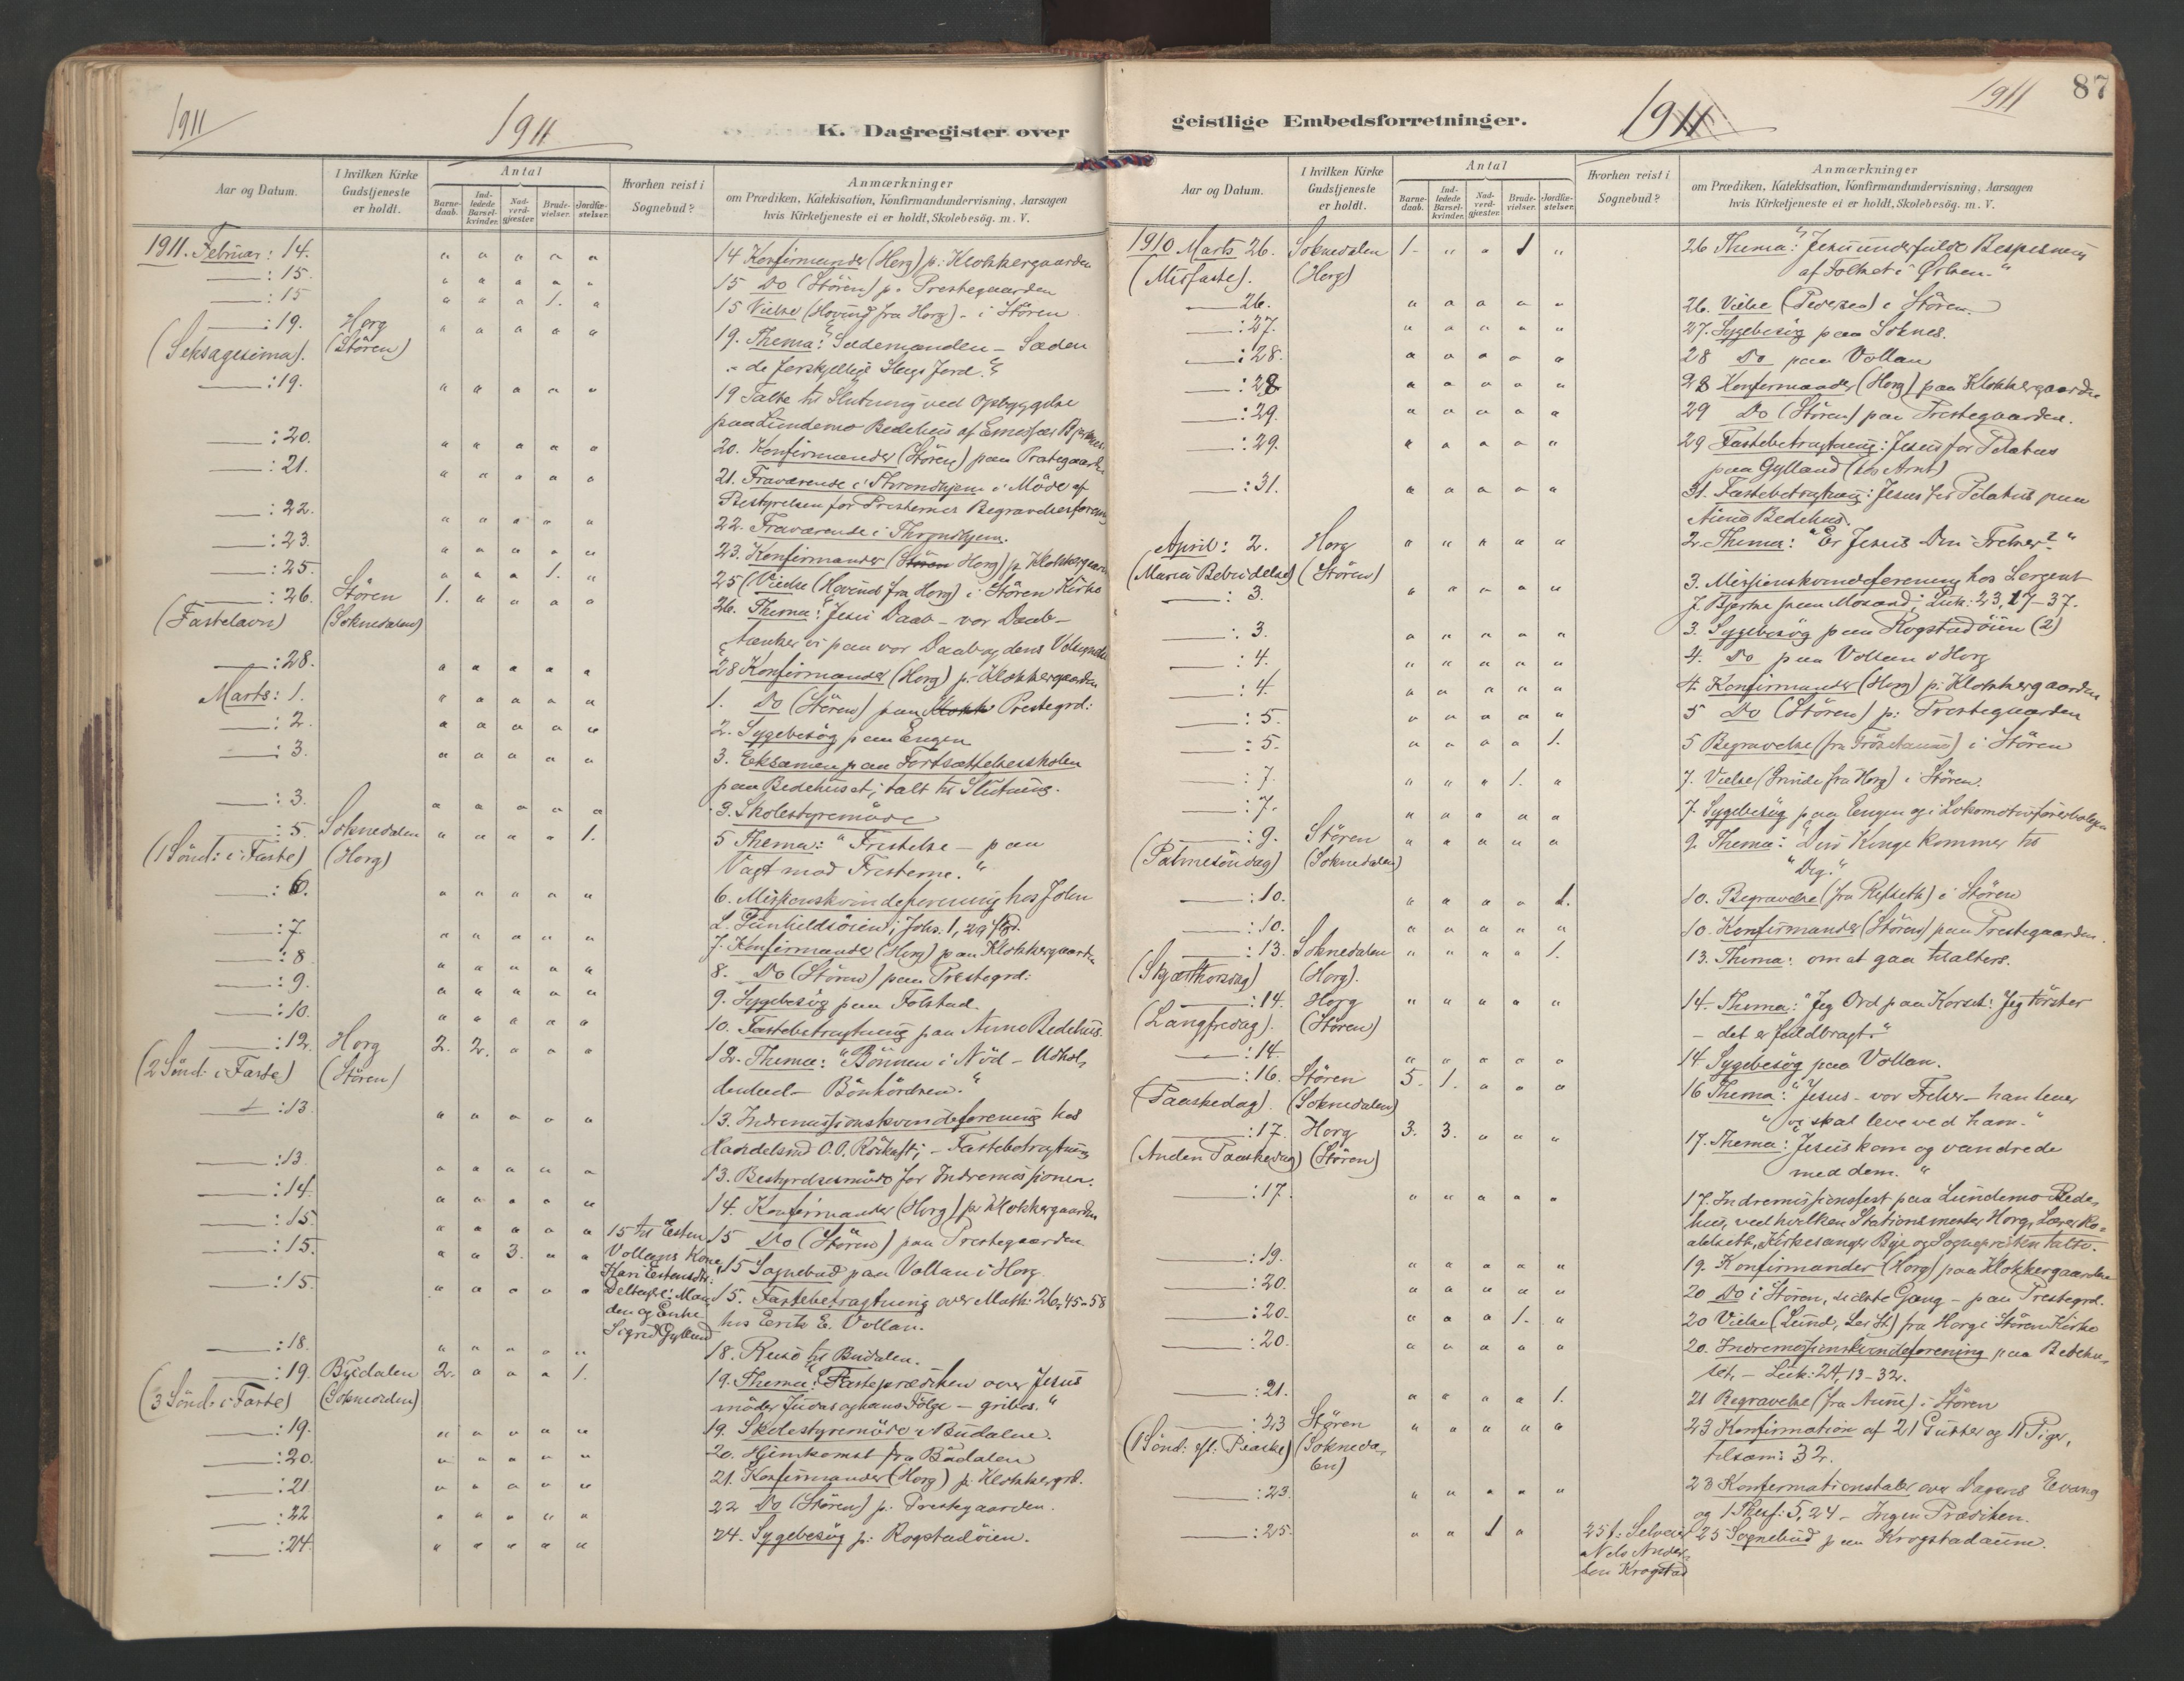 1911
1911
K. Dagregister over
Aar og Datum.
I hvilken Kirke Gudstjeneste er holdt.
Antal
Barne-daab.
Ind-ledede Barsel-kvinder.
Nad-verd-gjæster.
Brude-vielser.
Jordfæ-stelser.
Hvorhen reist i Sognebud?
Anmærkninger
om Prædiken, Katekisation, Konfirmandundervisning, Aarsagen
hvis Kirketjeneste ei er holdt, Skolebesög. m. V.
1911. Februar: 14. " " " " " 14 Konfirmander (Horg) p: Klokkergaarden
: 15. " " " " " 15 Do (Stören) p. Prestegaarden
: 15 " " " 1. " 15 Vielse (Hovind fra Horg) - i Stören
: 19. Horg " " " " " 19. Thema: "Sædemanden - Sæden
(Seksagesima). (Stören) - de forskjellige Slags Jord."
: 19. " " " " " 19 Talte til Slutning ved Opbyggelse
paa Lundemo Bedehus af Emissær
: 20. " " " " " 20. Konfirmander (Stören) paa Prestegaarden
: 21. " " " " " 21. Fraværende i Throndhjem i Möde af
Bestyrelsen for Presternes Begravelsesforening
: 22. " " " " " 22. Fraværende i Throndhjem.
: 23. " " " " " 23. Konfirmander (Stören Horg) p. Klokkergaarden
: 25. " " " 1. " 25 (Vielse (Hovind fra Horg) i Stören Kirke
: 26. Stören 1. " " " " 26. Thema: "Jesu Daab - vor Daab -
(Fastelavn) (Soknedalen) tænker vi paa vor Daab og dens Velsignelse
: 28. " " " " " 28 Konfirmander (Horg) p. Klokkergaarden
Marts: 1. " " " " " 1. Do (Stören) paa Klokk Prestegrd:
: 2. " " " " " 2. Sygebesög paa Engen
: 3. " " " " " 3. Eksamen paa Fortsættelsesskolen
paa Bedehuset; talt til Slutning.
: 3. " " " " " 3. Skolestyremöde
: 5. Soknedalen " " " " 1. 5 Thema: "Fristelse - paa
(1 Sönd: i Faste) (Horg) Vagt mod Fristerne."
: 6. " " " " " 6. Missionskvindeforening hos John
L. Gunhildsöien; Johs. 1, 29 ffl.
: 7. " " " " " 7. Konfirmander (Horg) paa Klokkergaarden
: 8 " " " " " 8. Do (Stören) paa Prestegrd:
: 9. " " " " " 9. Sygebesög paa Folstad.
: 10. " " " " " 10. Fastebetragtning paa Aune Bedehus.
: 12. Horg 2. 2. " " " 12. Thema: "Bönnen i Nöd - Udhol-
(2 Sönd: i Faste) (Stören) denhed - Bönhörelsen."
: 13. " " " " " 13. Indremissionskvindeforening hos
Handelsmd O. O. Röskaft; - Fastebetragtning
: 13. " " " " " 13. Bestyrelsesmöde for Indremissionen.
: 14. " " " " " 14. Konfirmander (Horg) p. Klokkergaarden
: 15. " " " " " 15 til Esten 15 Do (Stören) paa Prestegaarden
: 15. " " 3. " " Vollans Kone, 15 Sognebud paa Vollan i Horg.
Kari Estensdtr.
: 15. " " " " " Deltagere: Man- 15. Fastebetragtning over Math: 26, 45-58
den og Enke hos Erik E. Vollan.
Sigrid Gylland
: 18. " " " " " 18. Reise til Budalen.
: 19 Budalen 2. " " " 1. 19. Thema: "Fasteprædiken over Jesus
(3 Sönd: i Faste) (Soknedalen) möder Judas og hans Fölge - gribes."
: 19. " " " " " 19. Skolestyremöde i Budalen.
: 20. " " " " " 20. Hjemkomst fra Budalen
: 21 " " " " " 21. Konfirmander (Horg) p. Klokkergrd.
: 22 " " " " " 22 Do (Stören) p. Prestegaarden.
: 24. " " " " " 24. Sygebesög p: Rogstadöien.
geistlige Embedsforretninger.
1911
1911
87
Aar og Datum.
I hvilken Kirke Gudstjeneste er holdt.
Antal
Barne-daab.
Ind-ledede Barsel-kvinder.
Nad-verd-gjæster.
Brude-vielser.
Jordfæ-stelser.
Hvorhen reist i Sognebud?
Anmærkninger
om Prædiken, Katekisation, Konfirmandundervisning, Aarsagen
hvis Kirketjeneste ei er holdt, Skolebesög. m. V.
1910 Marts 26. Soknedalen 1. " " 1 " 26 Thema: "Jesu underfulde Bespisning
(Misfaste). (Horg) af Folket i Örken."
26. " " " " " 26. Vielse (Pedersen) i Stören.
: 27. " " " " " 27. Sygebesög paa Soknes.
: 28. " " " " " 28 Do paa Vollan
: 28 " " " " " 28 Konfirmander (Horg) paa Klokkergaarden
: 29. " " " " " 29 Do (Stören) paa Prestegaarden.
: 29. " " " " " 29 Fastebetragtning: Jesus for Pilatus
paa Gylland (hos Arnt)
: 31. " " " " " 31. Fastebetragtning: Jesus for Pilatus paa
Aune Bedehus.
April: 2. Horg " " " " " 2. Thema: "Er Jesus Din Frelser?"
(Mariæ Bebudelse) (Stören)
: 3. " " " " " 3. Missionskvindeforening hos Sergent
J. Bjerke paa Mosand; Luk: 23, 17-37.
: 3. " " " " " 3. Sygebesög paa Rogstadöien (2)
: 4. " " " " " 4. Do paa Vollan i Horg
: 4. " " " " " 4. Konfirmander (Horg) p: Klokkergaarden
: 5. " " " " " 5 Do (Stören) p: Prestegaarden
: 5. " " " " 1. 5 Begravelse i Stören
: 7. " " " 1. " 7. Vielse (Grinde fra Horg) i Stören.
: 7. " " " " " 7. Sygebesög paa Engen og i Lokomotivförerboligen
: 9. Stören " " " " " 9. Thema: "Din Konge kommer til
(Palmesöndag) (Soknedalen) "Dig."
: 10. " " " " 1. 10. Begravelse (fra Refseth) i Stören
: 10. " " " " " 10. Konfirmander (Stören) paa Prestegaarden.
: 13. Soknedalen " " " " 1. 13. Thema: om at gaa tilalters.
(Skjærthorsdag) (Horg).
: 14. Horg " " " " " 14. Thema: "Jeg Ord paa Korset: "Jeg törster
(Langfredag). (Stören) - det er fuldbragt."
: 14. " " " " " 14 Sygebesög paa Vollan.
: 16. Stören 5. 1. " " " 16 Thema: "Jesus - vor Frelser - han lever
(Paaskedag). (Soknedalen) "vi skal leve ved ham."
: 17. Horg 3. 3. " " " 17. Thema: "Jesus kom og vandrede
(Anden Paaskedag) (Stören) med dem."
: 17. " " " " " 17. Indremissionsfest paa Lundemo Bede-
hus, ved hvilken Stationsmester Horg, Lærer Ko-
abbseth, Kirkesanger Bye og Sognepresten talte.
: 19. " " " " " 19. Konfirmander (Horg) paa Klokkergaarden
: 20. " " " " " 20 Do i Stören, sidste Gang - paa Prestegrd.
: 20. " " " 1. " 20 Vielse (Lund, ) fra Horg i Stören Kirke
: 20. " " " " " 20. Indremissionskvindeforening paa Bedehu-
set, - Luk: 24, 13-32.
: 21. " " " " 1. 21 Begravelse (fra Aune) i Stören
: 23 Stören " " " " " 23 Konfirmation af 21 Gutter og 11 Piger,
(1 Sönd: eft: Paaske) (Sokneda- tilsam: 32.
len)
: 23. " " " " " 23 Konfirmationstaler over Dagens Evang
og 1 Thess: 5, 24 - Ingen Prædiken.
: 25. " " 1 " 25 f: Selveier 25 Sognebud paa Krogstadaune.
Nils Ander-
sen Krogstad